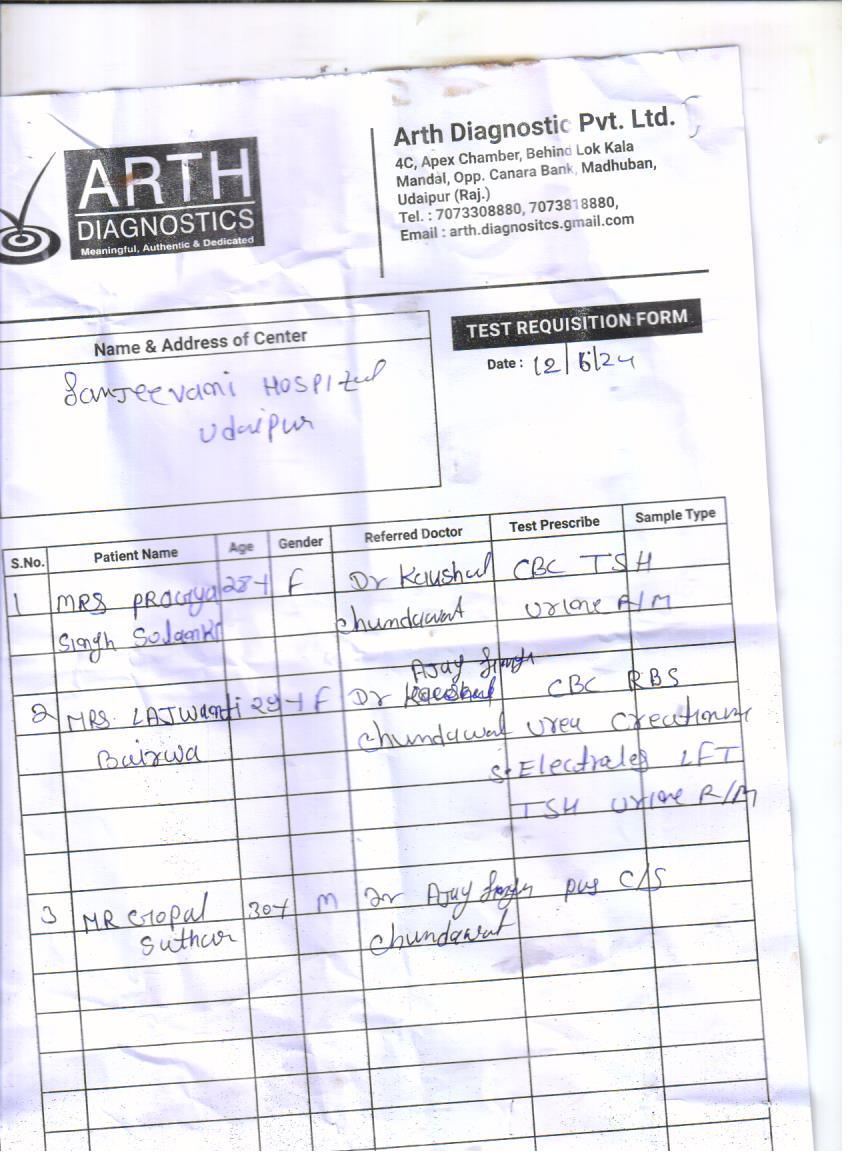 ARTH
DIAGNOSTICS
Meaningful, Authentic & Dedicated
Arth Diagnostic Pvt. Ltd.
4C, Apex Chamber, Behind Lok Kala
Mandal, Opp. Canara Bank, Madhuban,
Udaipur (Raj.)
Tel. : 7073308880, 7073818880,
Email : arth.diagnositcs.gmail.com
Name & Address of Center
TEST REQUISITION FORM
Date : 12/5/24
Sanjeevani HOSPITal
Udaipur
S.No. Patient Name Age Gender Referred Doctor Test Prescribe Sample Type
1 MRS 28Y F Dr Kaushal CBC TSH
Singh Solanki Chundawat Urine R/M
Ajay Singh
2 MRS. LAJWanti 29Y F Dr CBC RBS
Bairwa Chundawat Urea Creationine
S. Electrales LFT
TSH Urine R/M
3 MR Gopal 30Y M Dr Ajay Singh pus C/S
Suthar Chundawat